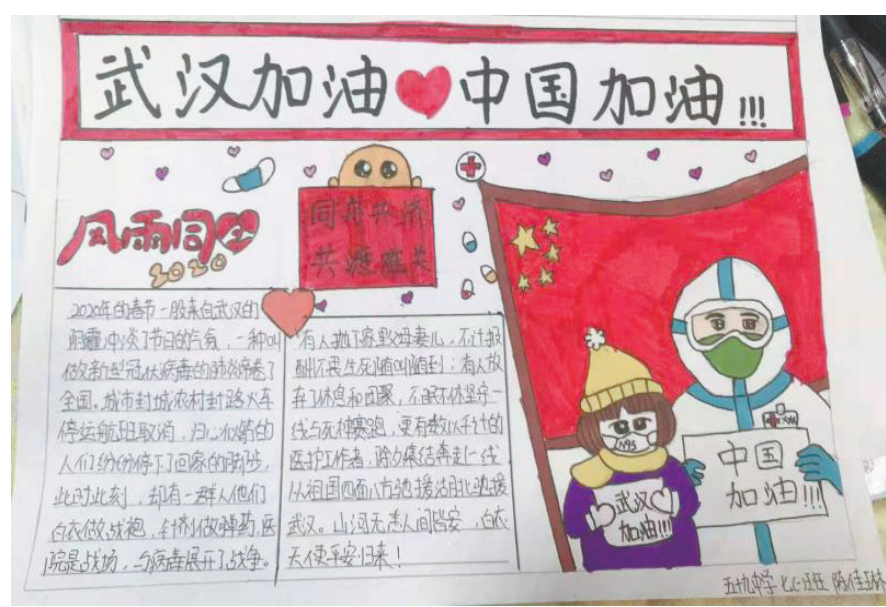 武汉加油 中国加油!!!
同舟共济
共渡难关
风雨同
2020
2020年的春节一股来自武汉的
阴霾冲淡了节日的气氛,一种叫
做新型冠状病毒的肺炎席卷了
全国。城市封城农村封路火车
停运航班取消,归心似箭的
人们纷纷停下了回家的脚步,
此时此刻,却有一群人他们
白衣做战袍,针剂做弹药,医
院是战场,与病毒展开了战争。
有人抛下家里父母妻儿,不计报
酬不畏生死随叫随到;有人放
弃了休息和团聚,不眠不休坚守一
线与死神赛跑,更有数以千计的
医护工作者,除夕集结奔赴一线
从祖国四面八方驰援湖北驰援
武汉。山河无恙人间皆安,白衣
天使平安归来!
N95
武汉
加油!!!
中国
加油!!!
五十九中学 七 班 陈佳